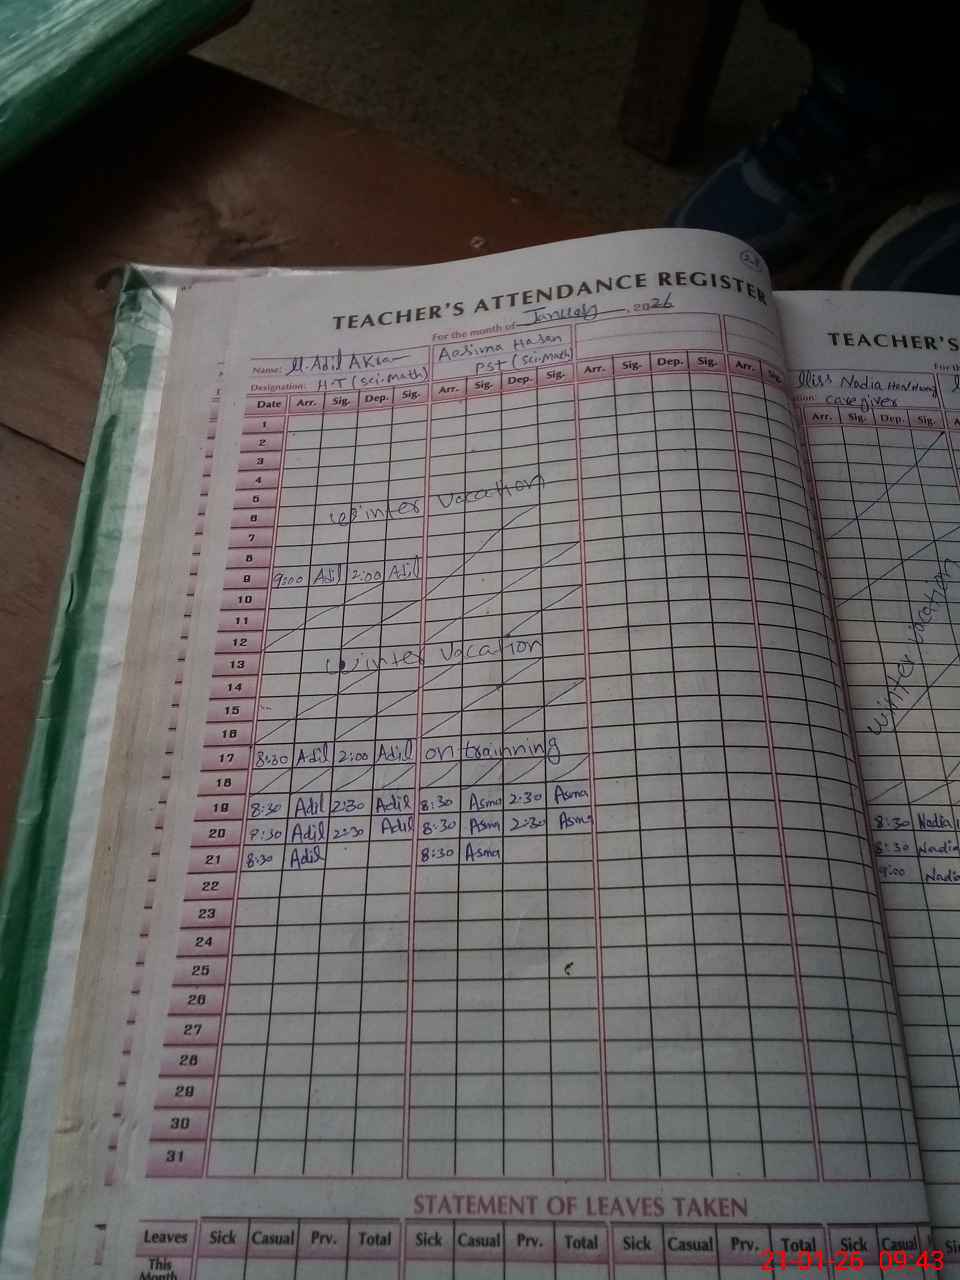 TEACHER'S ATTENDANCE REGISTER
For the month of January, 2026
Name: M. Adil Akram Aasima Hasan
Designation: H.T (Sci.Math) PST (Sci.Math)
Date Arr. Sig. Dep. Sig. Arr. Sig. Dep. Sig. Arr. Sig. Dep. Sig. Arr. Sig.
1
2
3
4
5 winter vacation
6
7
8
9 9:00 Adil 2:00 Adil
10
11
12
13 winter vacation
14
15
16
17 8:30 Adil 2:00 Adil on trainning
18
19 8:30 Adil 2:30 Adil 8:30 Asma 2:30 Asma
20 8:30 Adil 2:30 Adil 8:30 Asma 2:30 Asma
21 8:30 Adil 8:30 Asma
22
23
24
25
26
27
28
29
30
31
STATEMENT OF LEAVES TAKEN
Leaves Sick Casual Prv. Total Sick Casual Prv. Total Sick Casual Prv. Total Sick Casual
This
Month
TEACHER'S
Miss Nadia
caregiver
Arr. Sig. Dep. Sig.
winter vacation
8:30 Nadia
8:30 Nadia
9:00 Nadia
21-01-26 09:43